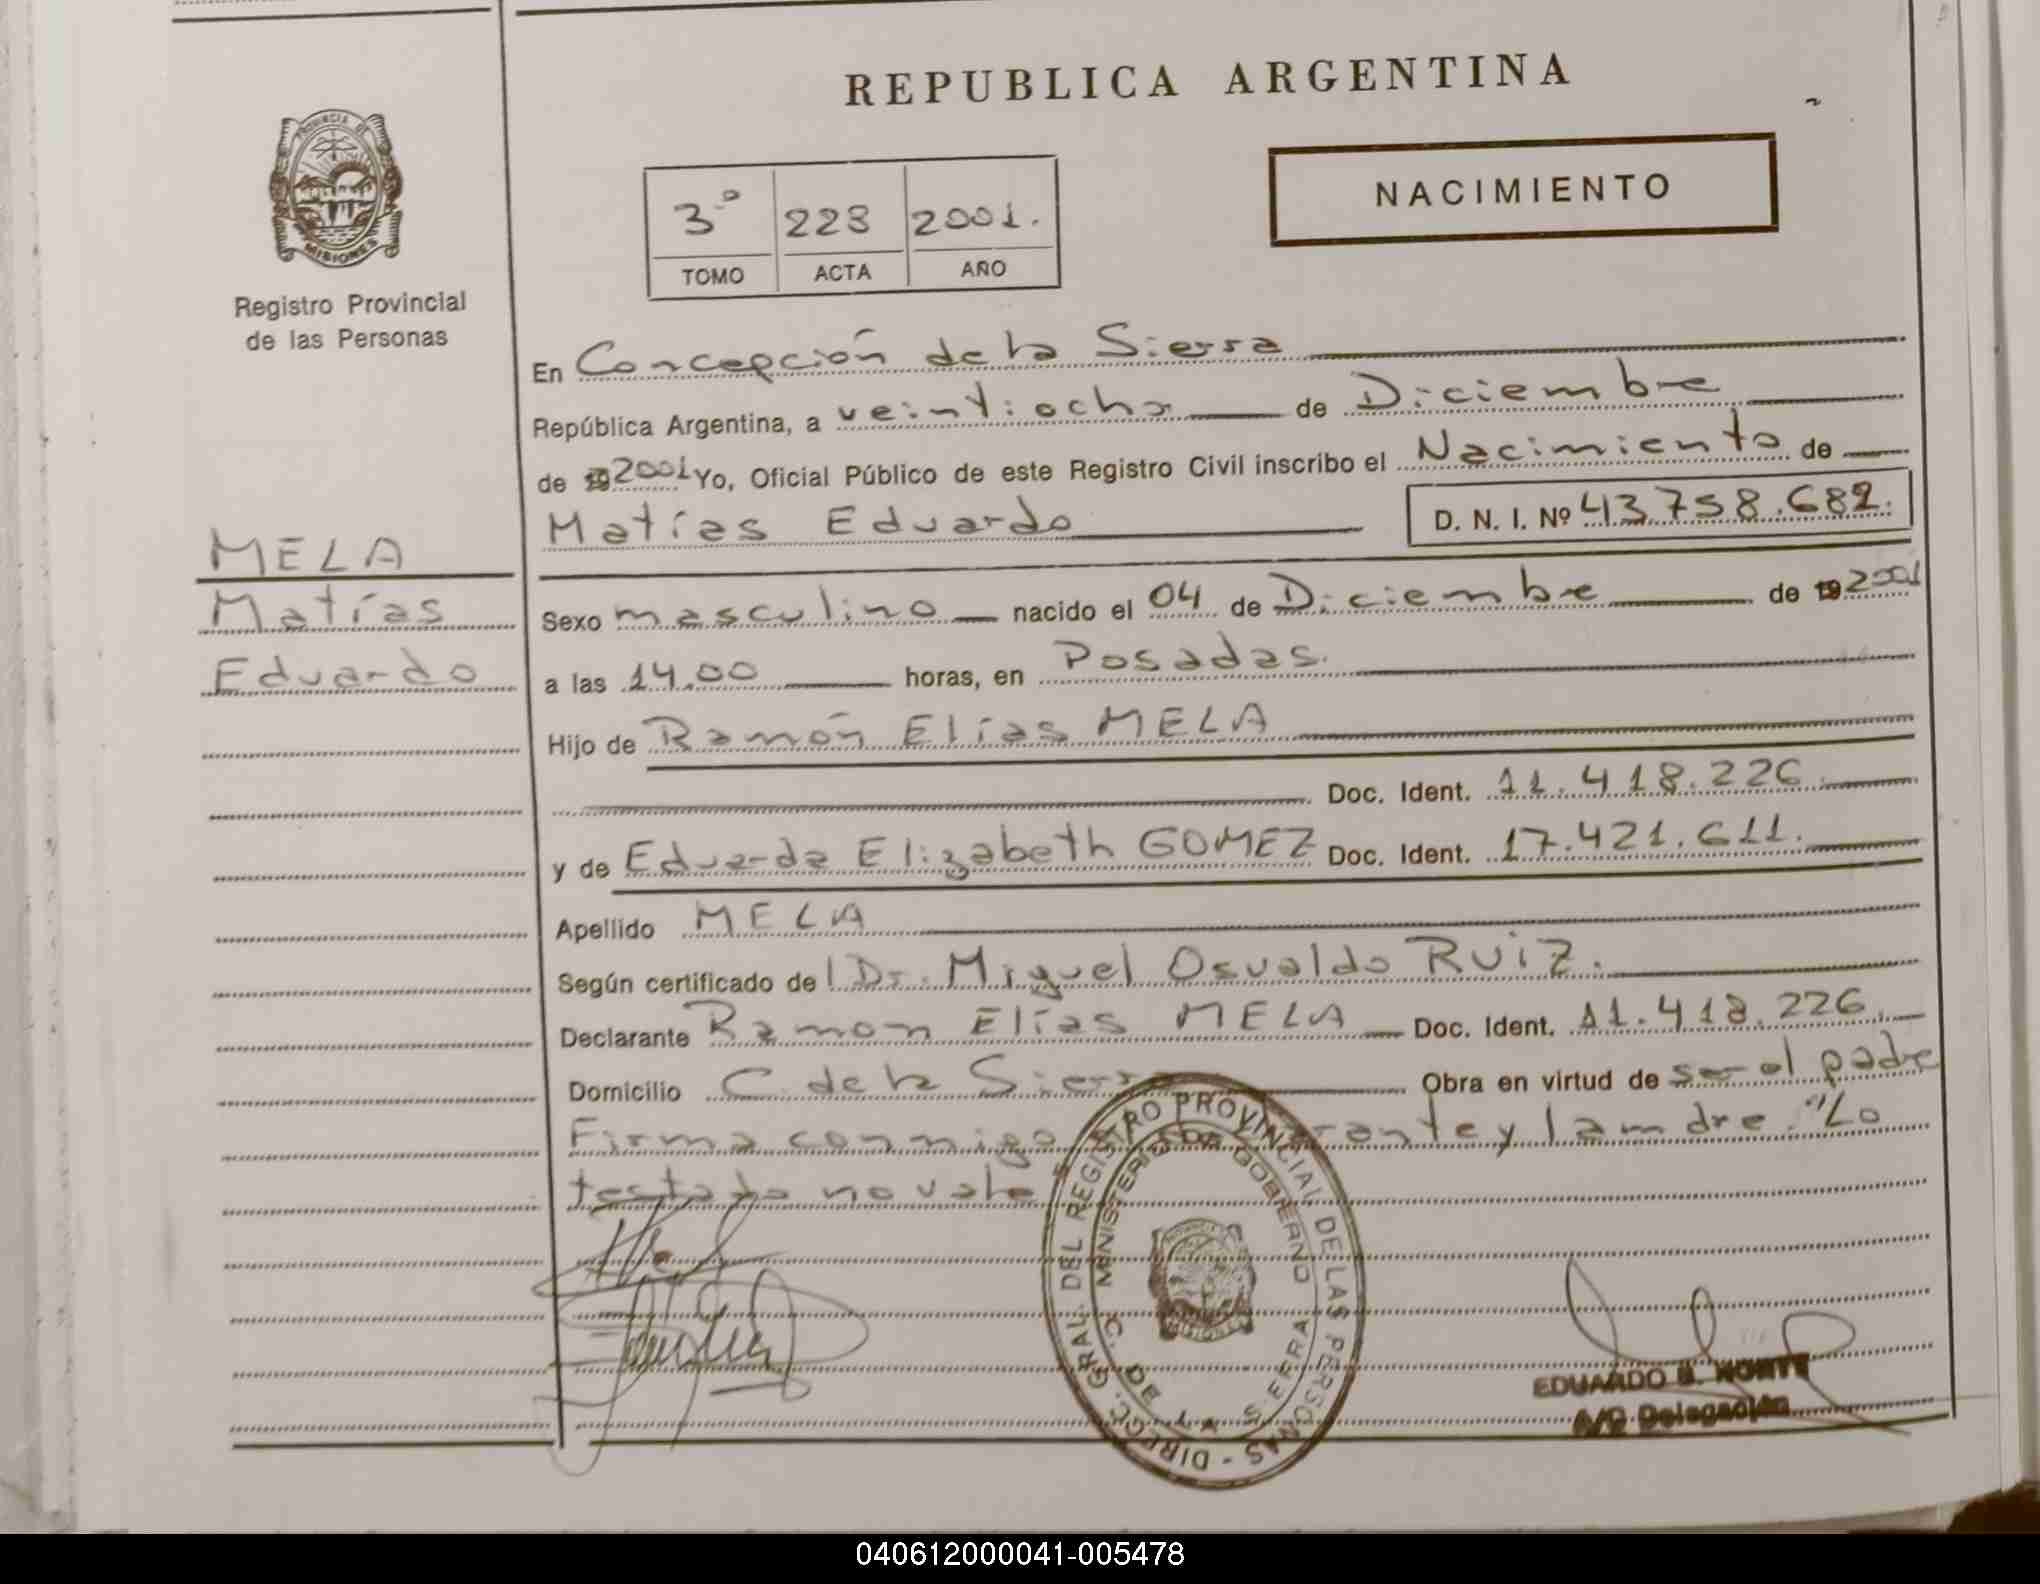 REPUBLICA ARGENTINA
NACIMIENTO
3º 223 2001.
TOMO ACTA AÑO
PROVINCIA DE
MISIONES
Registro Provincial
de las Personas
En Concepción de la Sierra
República Argentina, a veintiocho de Diciembre
de 19 2001 Yo, Oficial Público de este Registro Civil inscribo el Nacimiento de
Matías Eduardo D. N. I. Nº 43.758.682.
MELA
Matías
Eduardo
Sexo masculino nacido el 04 de Diciembre de 19 2001
a las 14,00 horas, en Posadas.
Hijo de Ramón Elías MELA
Doc. Ident. 11.418.226.
y de Eduarda Elizabeth GOMEZ Doc. Ident. 17.421.611.
Apellido MELA
Según certificado del Dr. Miguel Osvaldo RUIZ.
Declarante Ramon Elías MELA Doc. Ident. 11.418.226.
Domicilio C. de la Sierra Obra en virtud de ser el padre
Firma conmigo y la mdre. "Lo
testado no vale
DIREC. GRAL. DEL REGISTRO PROVINCIAL DE LAS PERSONAS
MINISTERIO DE GOBIERNO
C. DE LA SIERRA
EDUARDO B. NORTE
A/C Delegación
040612000041-005478